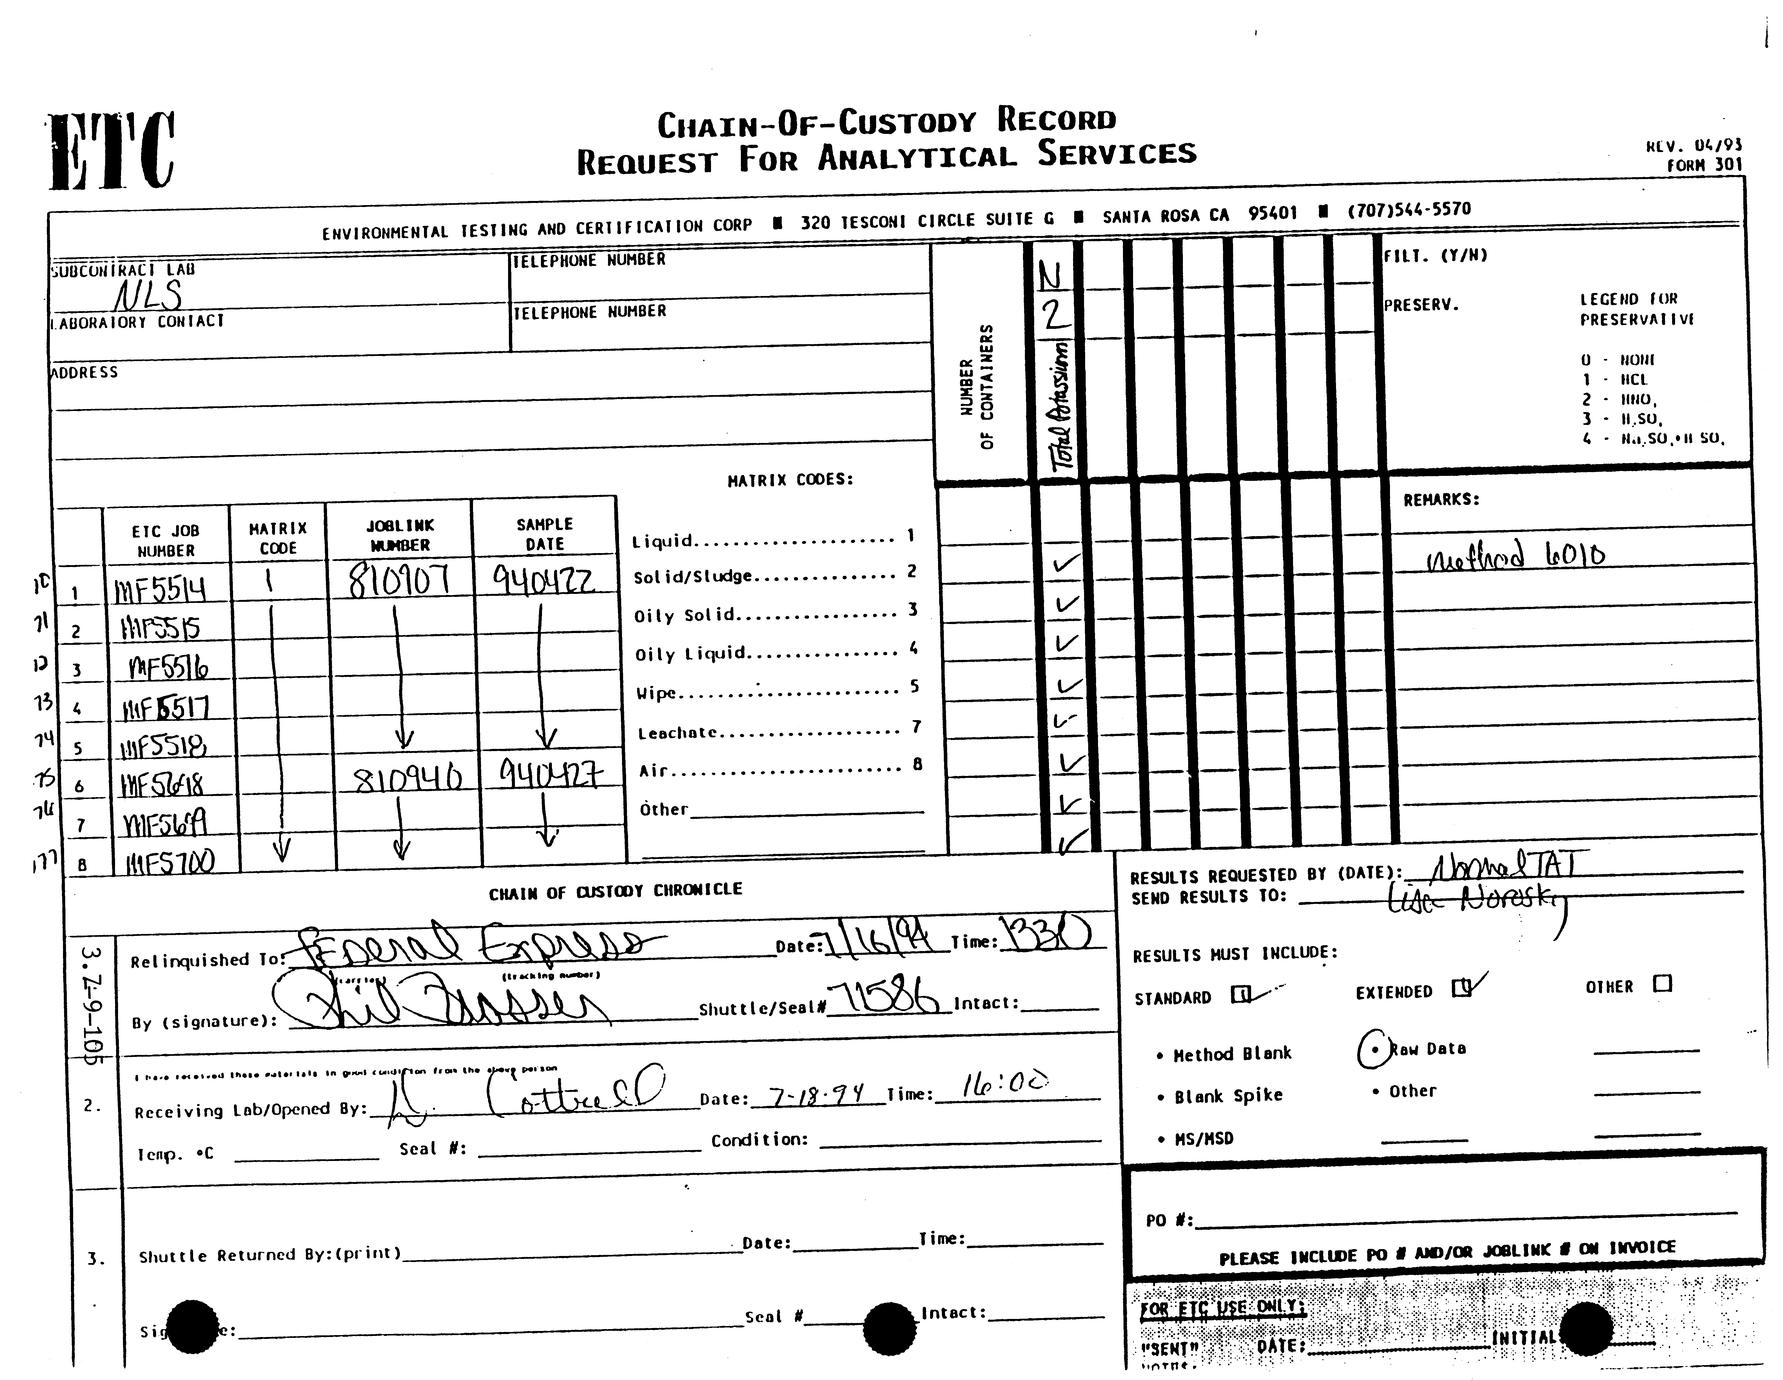 ETC
CHAIN-OF-CUSTODY RECORD
REQUEST FOR ANALYTICAL SERVICES
REV. 04/93
FORM 301
ENVIRONMENTAL TESTING AND CERTIFICATION CORP ■ 320 TESCONI CIRCLE SUITE G ■ SANTA ROSA CA 95401 ■ (707)544-5570
SUBCONTRACT LAB
NLS
TELEPHONE NUMBER
LABORATORY CONTACT
TELEPHONE NUMBER
ADDRESS
NUMBER
OF CONTAINERS
N
2
Total Potassium
FILT. (Y/N)
PRESERV.
LEGEND FOR
PRESERVATIVE
0 - NONE
1 - HCL
2 - HNO,
3 - H,SO,
4 - Na,SO,+H SO,
MATRIX CODES:
Liquid.................... 1
Solid/Sludge.............. 2
Oily Solid................ 3
Oily Liquid............... 4
Wipe...................... 5
Leachate.................. 7
Air....................... 8
Other
REMARKS:
Method 6010
ETC JOB NUMBER MATRIX CODE JOBLINK NUMBER SAMPLE DATE
1 MF5514 1 810907 940422
71 2 MF5515
3 MF5516
73 4 MF5517
74 5 MF5518
75 6 MF5698 810940 940427
76 7 MF5699
177 8 MF5700
CHAIN OF CUSTODY CHRONICLE
3.Z-9-105
Relinquished To: Federal Express Date: 7/16/94 Time: 1330
(carrier) (tracking number)
By (signature): Phil Shuttle/Seal# 71586 Intact:
I have received these materials in good condition from the above person
2. Receiving Lab/Opened By: Cottrell Date: 7-18-94 Time: 16:00
Temp. °C Seal #: Condition:
3. Shuttle Returned By:(print) Date: Time:
Seal # Intact:
RESULTS REQUESTED BY (DATE): Normal TAT
SEND RESULTS TO: Lisa Norosky
RESULTS MUST INCLUDE:
STANDARD EXTENDED OTHER
• Method Blank • Raw Data
• Blank Spike • Other
• MS/MSD
PO #:
PLEASE INCLUDE PO # AND/OR JOBLINK # ON INVOICE
FOR ETC USE ONLY:
"SENT" DATE: INITIAL